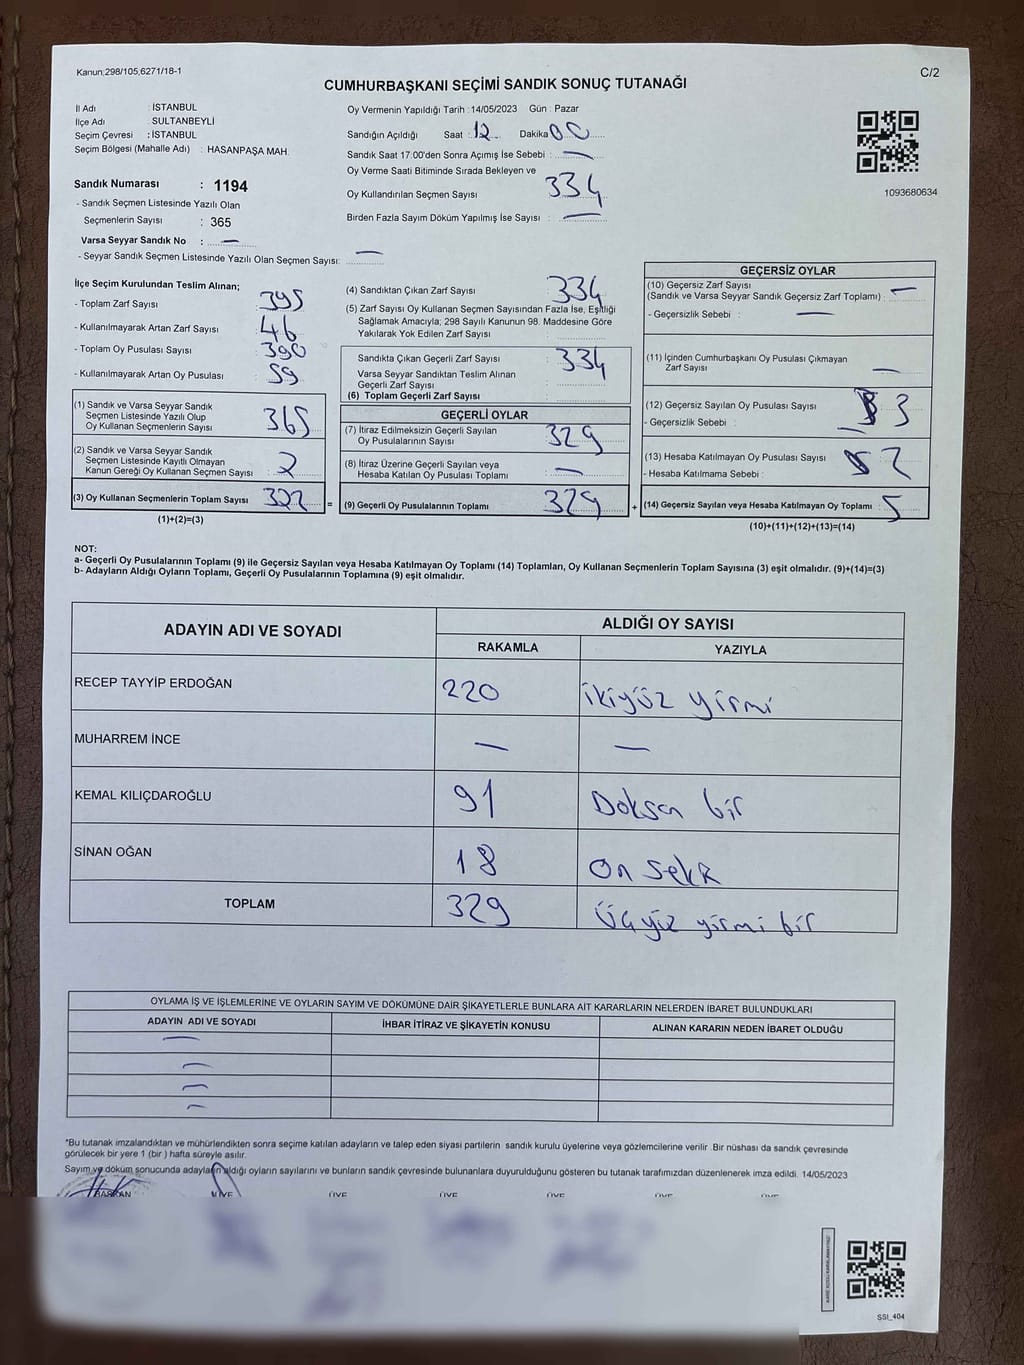 Kanun;298/105,6271/18-1
C/2
CUMHURBAŞKANI SEÇİMİ SANDIK SONUÇ TUTANAĞI
İl Adı : İSTANBUL
İlçe Adı : SULTANBEYLİ
Seçim Çevresi : İSTANBUL
Seçim Bölgesi (Mahalle Adı) : HASANPAŞA MAH.
Sandık Numarası : 1194
- Sandık Seçmen Listesinde Yazılı Olan
Seçmenlerin Sayısı : 365
Varsa Seyyar Sandık No : —
- Seyyar Sandık Seçmen Listesinde Yazılı Olan Seçmen Sayısı: —
Oy Vermenin Yapıldığı Tarih : 14/05/2023 Gün : Pazar
Sandığın Açıldığı Saat : 12 Dakika 00
Sandık Saat 17:00'den Sonra Açımış İse Sebebi : —
Oy Verme Saati Bitiminde Sırada Bekleyen ve
Oy Kullandırılan Seçmen Sayısı 334
Birden Fazla Sayım Döküm Yapılmış İse Sayısı : —
1093680634
İlçe Seçim Kurulundan Teslim Alınan;
- Toplam Zarf Sayısı : 395
- Kullanılmayarak Artan Zarf Sayısı : 46
- Toplam Oy Pusulası Sayısı : 390
- Kullanılmayarak Artan Oy Pusulası : 59
(1) Sandık ve Varsa Seyyar Sandık
Seçmen Listesinde Yazılı Olup
Oy Kullanan Seçmenlerin Sayısı 365
(2) Sandık ve Varsa Seyyar Sandık
Seçmen Listesinde Kayıtlı Olmayan
Kanun Gereği Oy Kullanan Seçmen Sayısı 2
(3) Oy Kullanan Seçmenlerin Toplam Sayısı 327 =
(1)+(2)=(3)
(4) Sandıktan Çıkan Zarf Sayısı : 334
(5) Zarf Sayısı Oy Kullanan Seçmen Sayısından Fazla İse, Eşitliği
Sağlamak Amacıyla; 298 Sayılı Kanunun 98. Maddesine Göre
Yakılarak Yok Edilen Zarf Sayısı :
Sandıkta Çıkan Geçerli Zarf Sayısı : 334
Varsa Seyyar Sandıktan Teslim Alınan
Geçerli Zarf Sayısı :
(6) Toplam Geçerli Zarf Sayısı :
GEÇERLİ OYLAR
(7) İtiraz Edilmeksizin Geçerli Sayılan
Oy Pusulalarının Sayısı : 329
(8) İtiraz Üzerine Geçerli Sayılan veya
Hesaba Katılan Oy Pusulası Toplamı : —
(9) Geçerli Oy Pusulalarının Toplamı : 329 +
GEÇERSİZ OYLAR
(10) Geçersiz Zarf Sayısı
(Sandık ve Varsa Seyyar Sandık Geçersiz Zarf Toplamı) : —
- Geçersizlik Sebebi : —
(11) İçinden Cumhurbaşkanı Oy Pusulası Çıkmayan
Zarf Sayısı : —
(12) Geçersiz Sayılan Oy Pusulası Sayısı : 3
- Geçersizlik Sebebi :
(13) Hesaba Katılmayan Oy Pusulası Sayısı : 2
- Hesaba Katılmama Sebebi :
(14) Geçersiz Sayılan veya Hesaba Katılmayan Oy Toplamı : 5
(10)+(11)+(12)+(13)=(14)
NOT:
a- Geçerli Oy Pusulalarının Toplamı (9) ile Geçersiz Sayılan veya Hesaba Katılmayan Oy Toplamı (14) Toplamları, Oy Kullanan Seçmenlerin Toplam Sayısına (3) eşit olmalıdır. (9)+(14)=(3)
b- Adayların Aldığı Oyların Toplamı, Geçerli Oy Pusulalarının Toplamına (9) eşit olmalıdır.
ADAYIN ADI VE SOYADI
ALDIĞI OY SAYISI
RAKAMLA YAZIYLA
RECEP TAYYİP ERDOĞAN 220 ikiyüz yirmi
MUHARREM İNCE — —
KEMAL KILIÇDAROĞLU 91 Doksan bir
SİNAN OĞAN 18 On Sekiz
TOPLAM 329 Üçyüz yirmi bir
OYLAMA İŞ VE İŞLEMLERİNE VE OYLARIN SAYIM VE DÖKÜMÜNE DAİR ŞİKAYETLERLE BUNLARA AİT KARARLARIN NELERDEN İBARET BULUNDUKLARI
ADAYIN ADI VE SOYADI İHBAR İTİRAZ VE ŞİKAYETİN KONUSU ALINAN KARARIN NEDEN İBARET OLDUĞU
—
—
—
—
*Bu tutanak imzalandıktan ve mühürlendikten sonra seçime katılan adayların ve talep eden siyasi partilerin sandık kurulu üyelerine veya gözlemcilerine verilir. Bir nüshası da sandık çevresinde
görülecek bir yere 1 (bir ) hafta süreyle asılır.
Sayım ve döküm sonucunda adayların aldığı oyların sayılarını ve bunların sandık çevresinde bulunanlara duyurulduğunu gösteren bu tutanak tarafımızdan düzenlenerek imza edildi. 14/05/2023
BAŞKAN ÜYE ÜYE ÜYE ÜYE ÜYE ÜYE
SSI_404